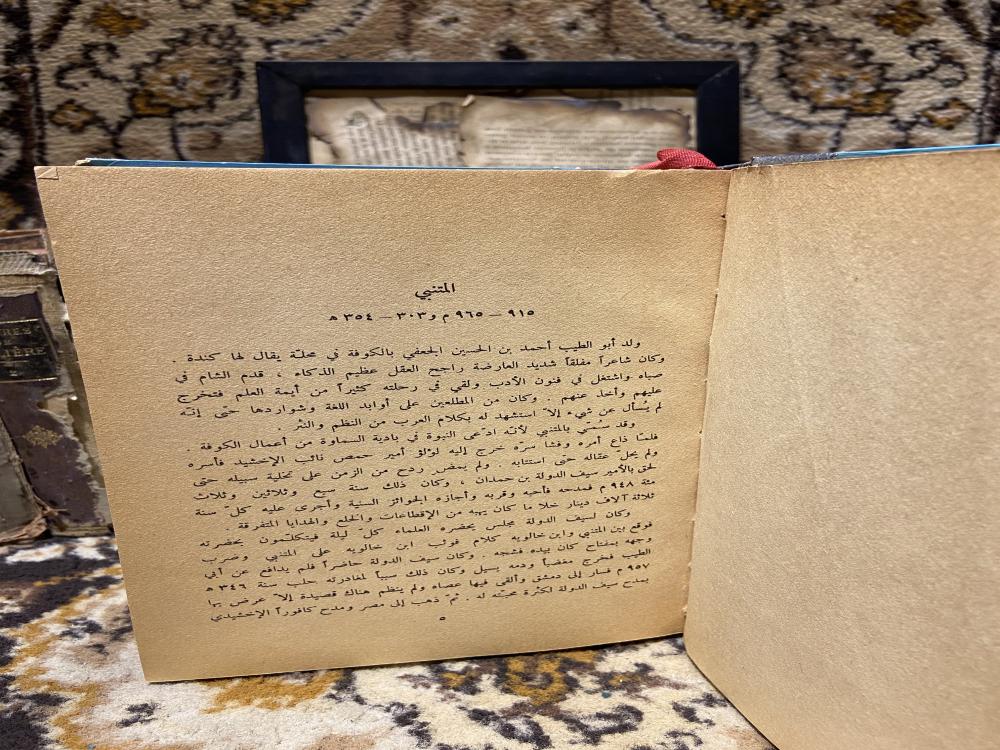 المتنبي
٩١٥ – ٩٦٥ م و ٣٠٣ – ٣٥٤ ه
ولد أبو الطيب أحمد بن الحسين الجعفي بالكوفة في محلّة يقال لها كندة .
وكان شاعراً مفلقاً شديد العارضة راجح العقل عظيم الذكاء ، قدم الشام في
صباه واشتغل في فنون الأدب ولقي في رحلته كثيراً من أيمة العلم فتخرج
عليهم وأخذ عنهم . وكان من المطلعين على أوابد اللغة وشواردها حتى إنّه
لم يُسأل عن شيء إلاّ استشهد له بكلام العرب من النظم والنثر .
وقد سُمّي بالمتنبي لأنّه ادّعى النبوة في بادية السماوة من أعمال الكوفة .
فلمّا ذاع أمره وفشا سرّه خرج إليه لؤلؤ أمير حمص نائب الإخشيد فأسره
ولم يحلّ عقاله حتى استتابه . ولم يمض ردح من الزمن على تخلية سبيله حتى
لحق بالأمير سيف الدولة بن حمدان ، وكان ذلك سنة سبع وثلاثين وثلاث
مئة ٩٤٨ م فمدحه فأحبه وقربه وأجازه الجوائز السنية وأجرى عليه كلّ سنة
ثلاثة آلاف دينار خلا ما كان يهبه من الإقطاعات والخلع والهدايا المتفرقة .
وكان لسيف الدولة مجلس يحضره العلماء كلّ ليلة فيتكلّمون بحضرته
فوقع بين المتنبي وابن خالويه كلام فوثب ابن خالويه على المتنبي وضرب
وجهه بمفتاح كان بيده فشجه . وكان سيف الدولة حاضراً فلم يدافع عن أبي
الطيب فخرج مغضباً ودمه يسيل وكان ذلك سبباً لمغادرته حلب سنة ٣٤٦ ه
٩٥٧ م فسار إلى دمشق وألقى فيها عصاه ولم ينظم هناك قصيدة إلاّ عرض بها
بمدح سيف الدولة لكثرة محبّته له . ثمّ ذهب إلى مصر ومدح كافوراً الإخشيدي
٥